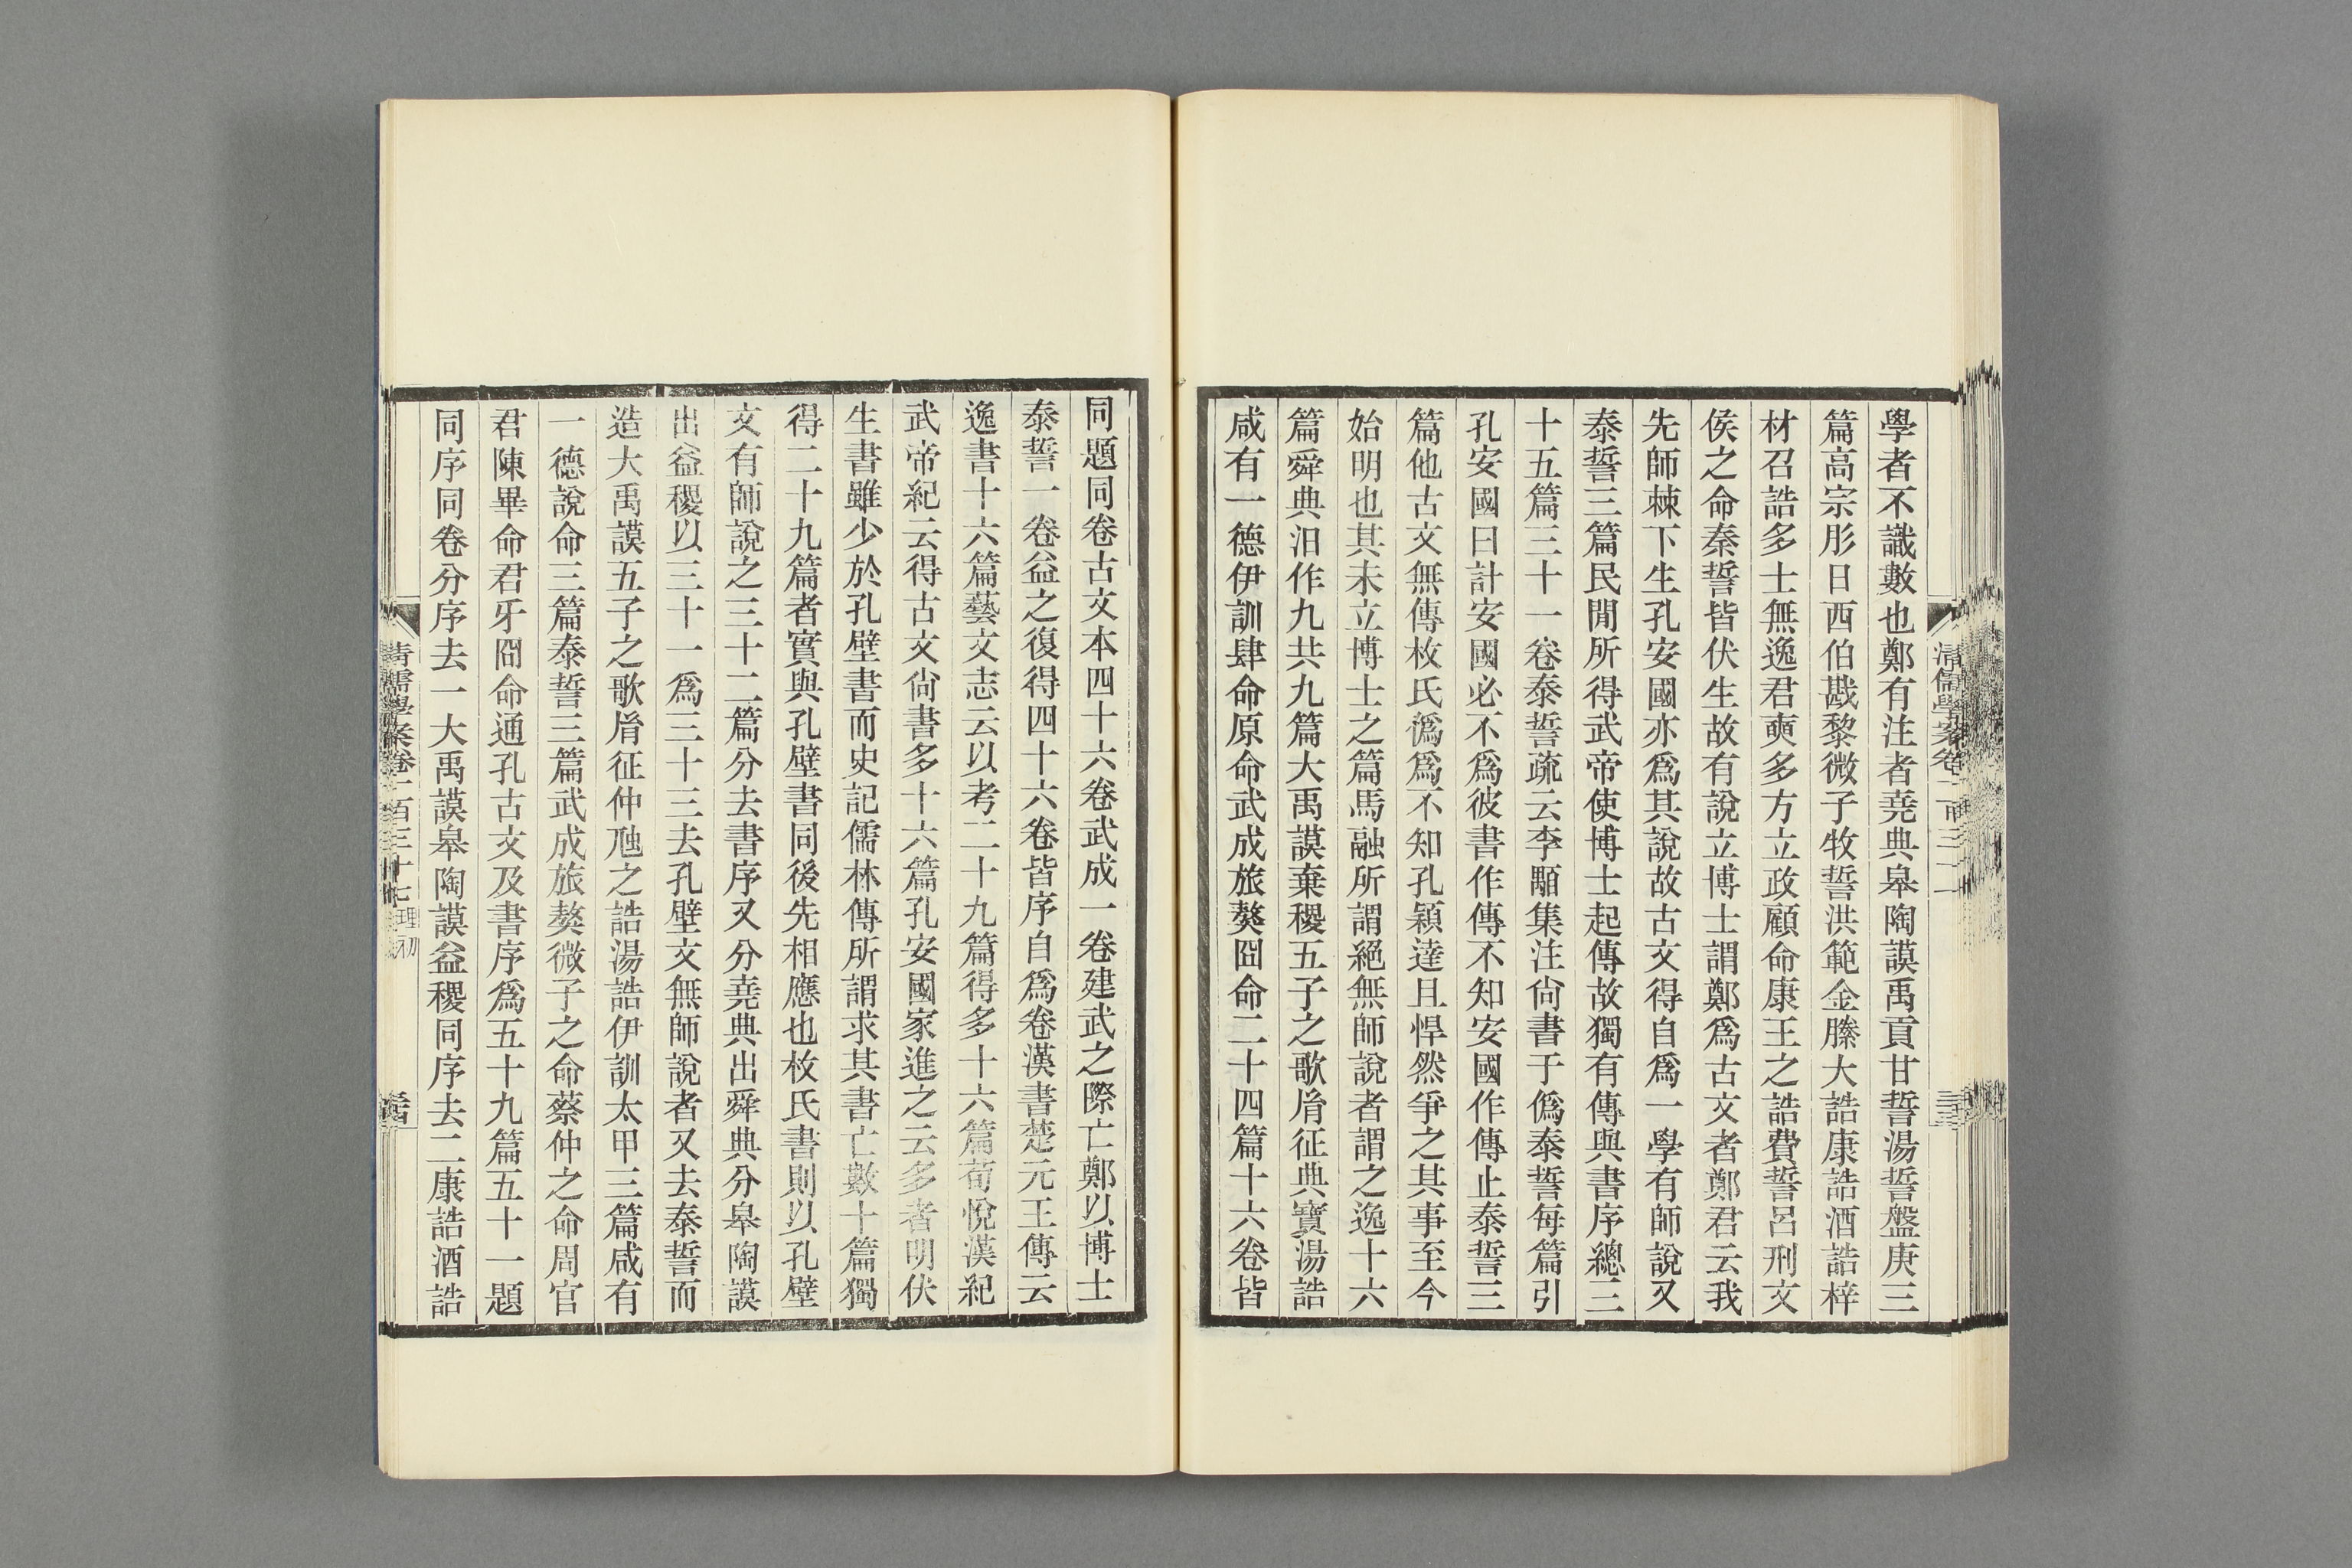 學者不識數也鄭有注者堯典皋陶謨禹貢甘誓湯誓盤庚三
篇高宗肜日西伯戡黎微子牧誓洪範金縢大誥康誥酒誥梓
材召誥多士無逸君奭多方立政顧命康王之誥費誓呂刑文
侯之命秦誓皆伏生故有說立博士謂鄭爲古文者鄭君云我
先師棘下生孔安國亦爲其說故古文得自爲一學有師說又
泰誓三篇民閒所得武帝使博士起傳故獨有傳與書序總三
十五篇三十一卷泰誓疏云李顒集注尙書于僞泰誓每篇引
孔安國曰計安國必不爲彼書作傳不知安國作傳止泰誓三
篇他古文無傳枚氏僞爲不知孔穎達且悍然爭之其事至今
始明也其未立博士之篇馬融所謂絕無師說者謂之逸十六
篇舜典汨作九共九篇大禹謨棄稷五子之歌胤征典寶湯誥
咸有一德伊訓肆命原命武成旅獒冏命二十四篇十六卷皆
同題同卷古文本四十六卷武成一卷建武之際亡鄭以博士
泰誓一卷益之復得四十六卷皆序自爲卷漢書楚元王傳云
逸書十六篇藝文志云以考二十九篇得多十六篇荀悅漢紀
武帝紀云得古文尙書多十六篇孔安國家進之云多者明伏
生書雖少於孔壁書而史記儒林傳所謂求其書亡數十篇獨
得二十九篇者實與孔壁書同後先相應也枚氏書則以孔壁
文有師說之三十二篇分去書序又分堯典出舜典分皋陶謨
出益稷以三十一爲三十三去孔壁文無師說者又去泰誓而
造大禹謨五子之歌胤征仲虺之誥湯誥伊訓太甲三篇咸有
一德說命三篇泰誓三篇武成旅獒微子之命蔡仲之命周官
君陳畢命君牙冏命通孔古文及書序爲五十九篇五十一題
同序同卷分序去一大禹謨皋陶謨益稷同序去二康誥酒誥
清儒學案卷一百三十七 理初